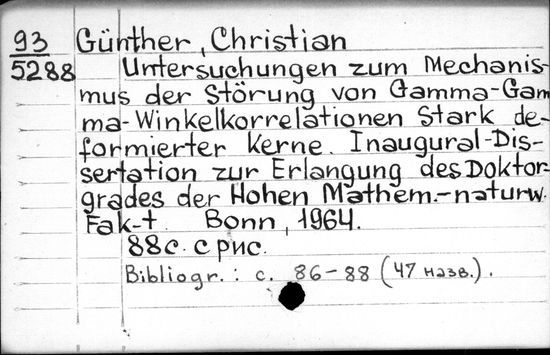 93 Günther, Christian
5288 Untersuchungen zum Mechanis-
mus der Störung von Gamma-Gam
ma-Winkelkorrelationen Stark de-
formierter Kerne. Inaugural-Dis-
sertation zur Erlangung des Doktor-
grades der Hohen Mathem.-naturw.
Fak-t Bonn, 1964.
88c. с рис.
Bibliogr.: с. 86-88 (47 назв.).